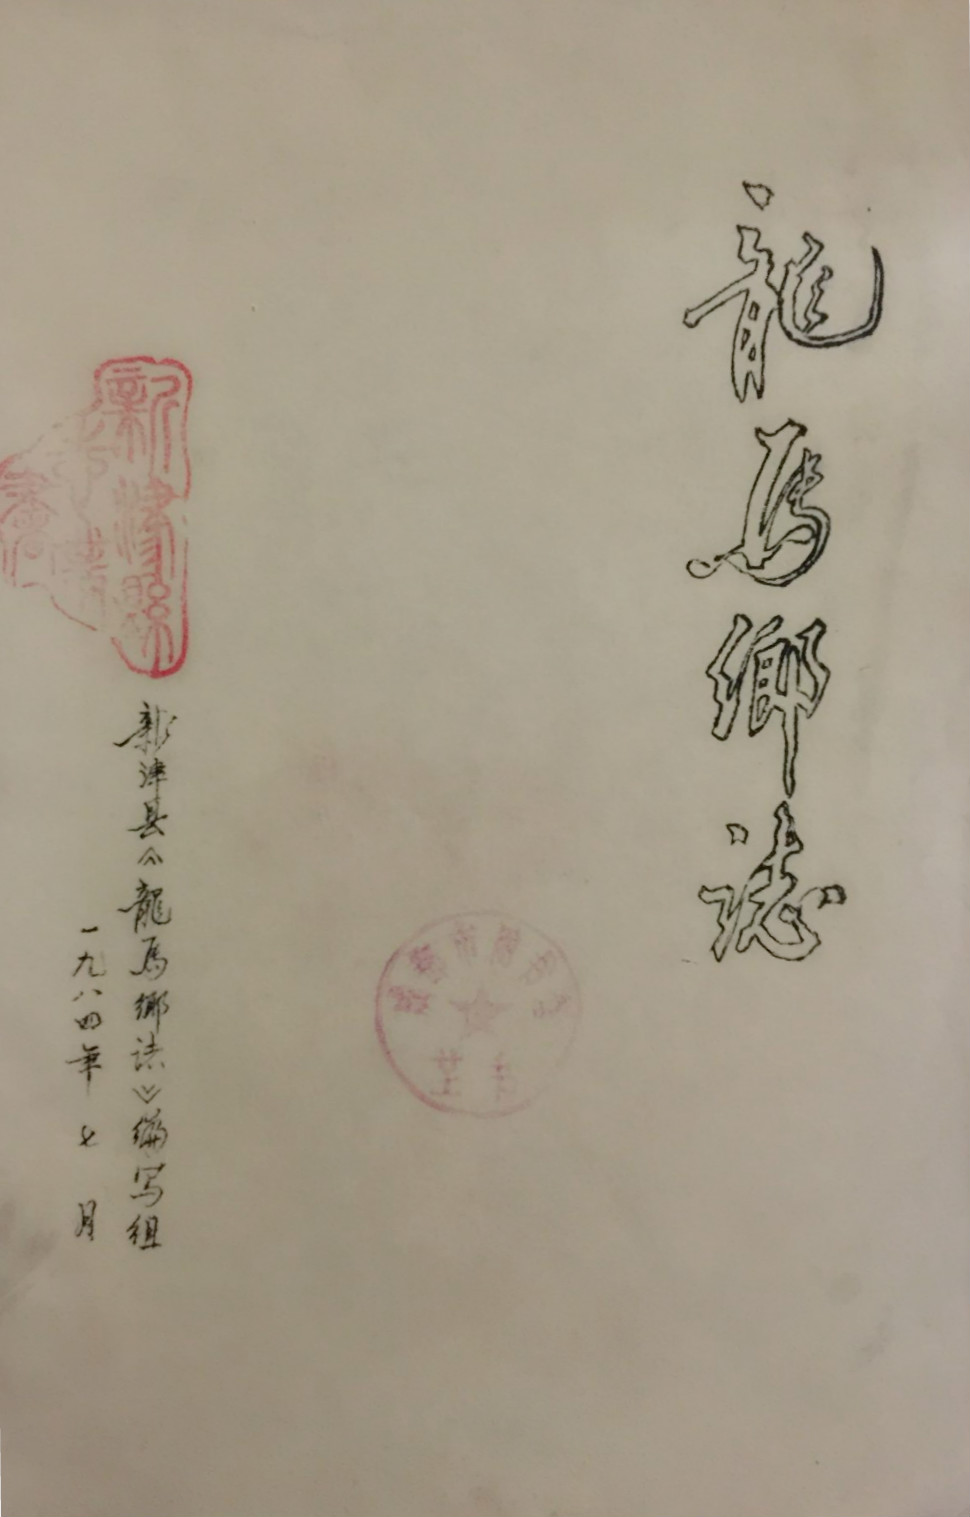 龍馬鄉誌
新津縣
新津县《龍馬鄉誌》编写组
一九八四年七月